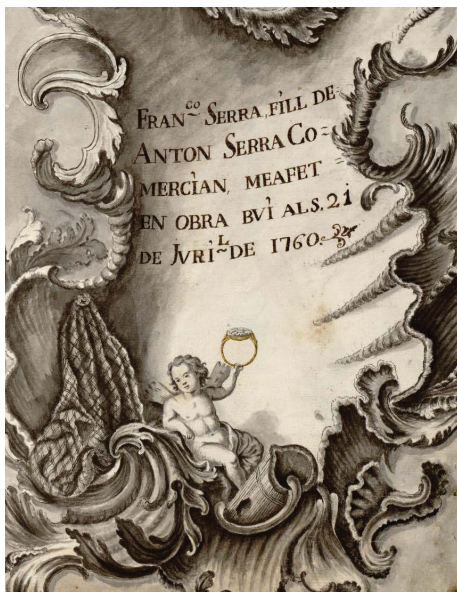 FRAN^co SERRA, FILL DE
ANTON SERRA CO=
MERCIAN, MEAFET
EN OBRA BUI ALS. 21
DE JURI^L DE 1760.